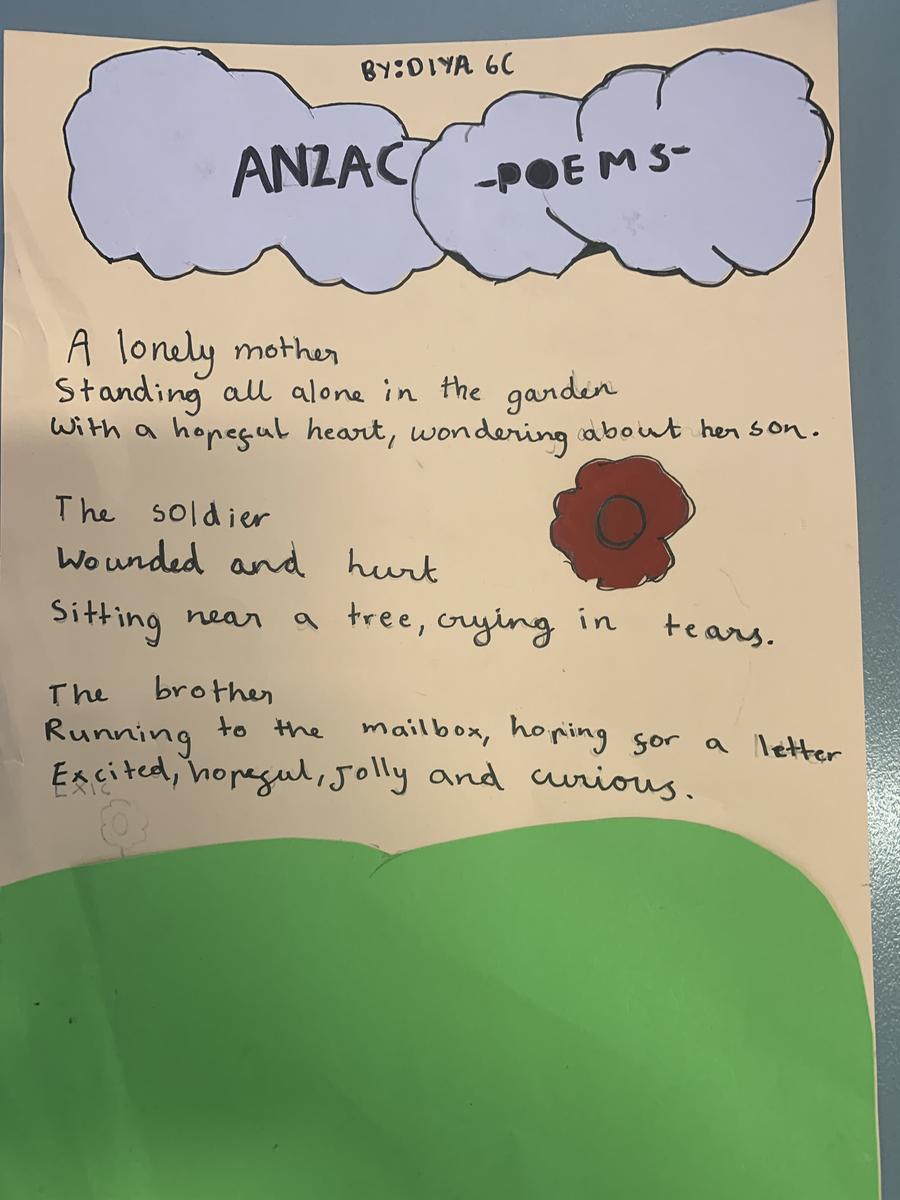 BY:DIYA 6C
ANZAC -POEMS-
A lonely mother
Standing all alone in the garden
With a hopeful heart, wondering about her son.
The soldier
Wounded and hurt
Sitting near a tree, crying in tears.
The brother
Running to the mailbox, hoping for a letter
Excited, hopeful, jolly and curious.
Exic